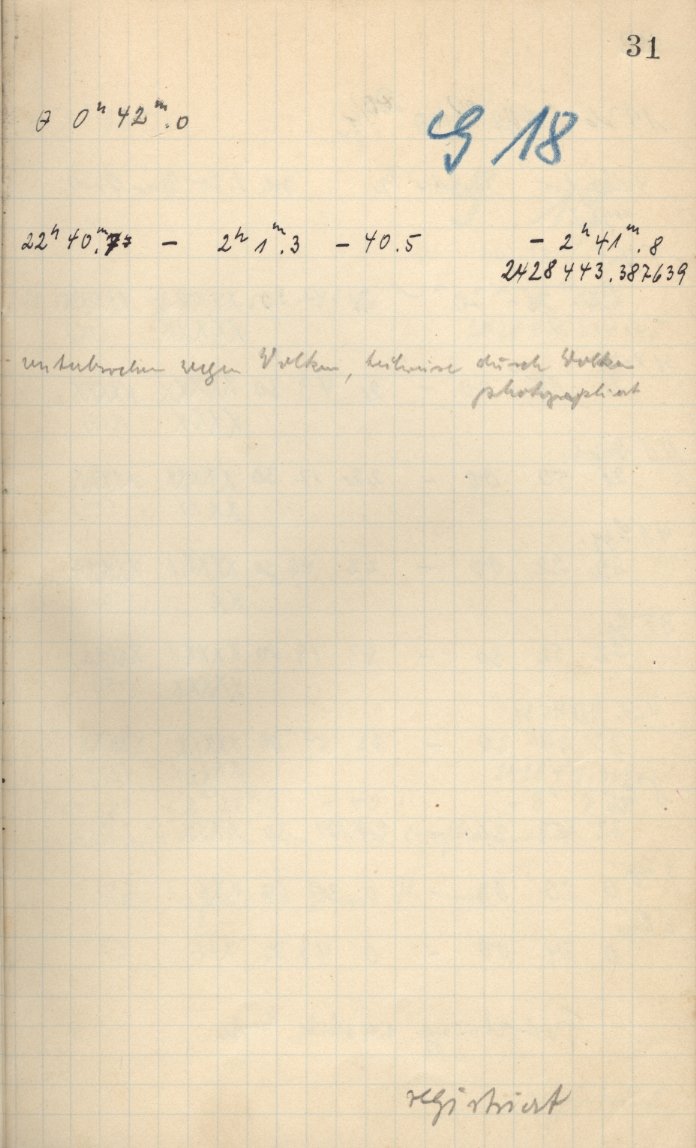 31
θ 0ʰ 42ᵐ.0
G 18
22ʰ 40ᵐ.77 – 2ʰ 1ᵐ.3 – 40.5 – 2ʰ 41ᵐ.8
2428443.387639
unterbrochen wegen Wolken, teilweise durch Wolken
photographiert
registriert